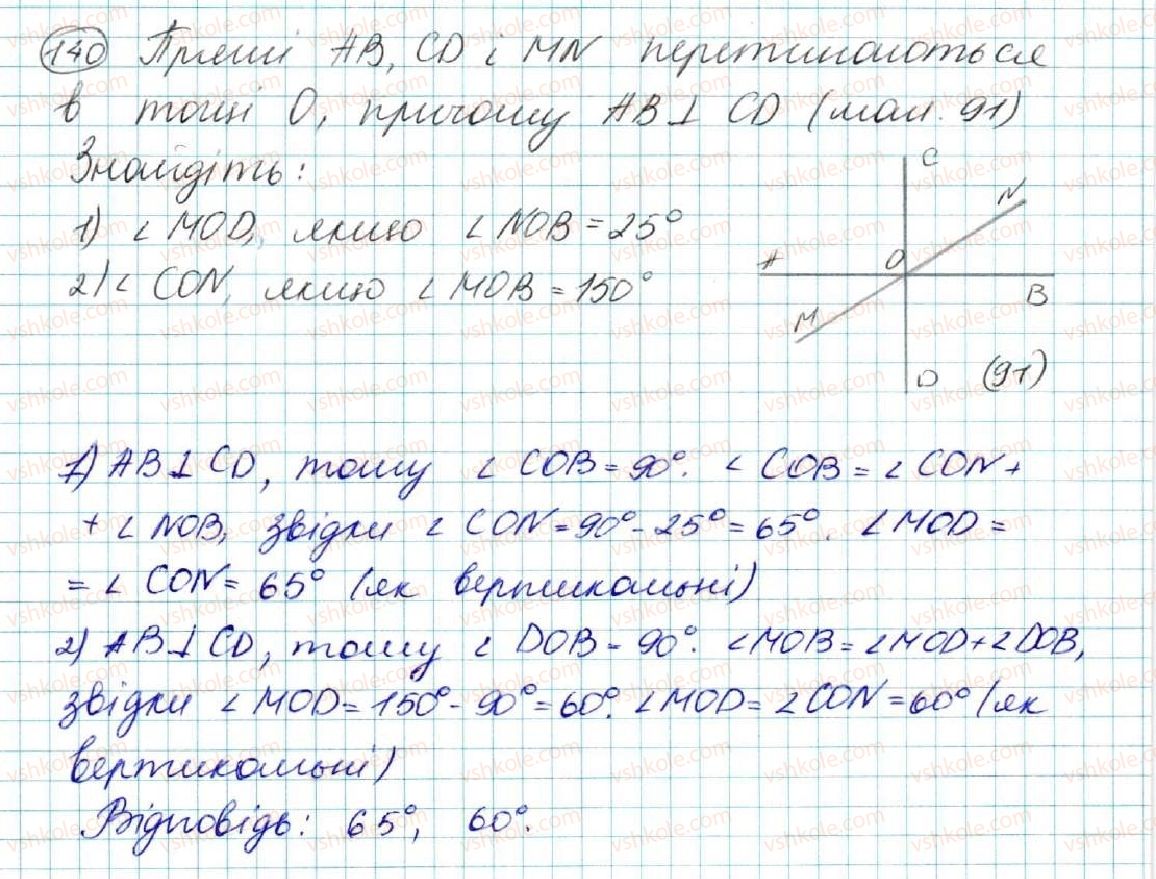 140 Прямі AB, CD і MN перетинаються
в точці O, причому AB⊥ CD (мал. 91)
Знайдіть:
1) ∠ MOD, якщо ∠ NOB = 25°
2) ∠ CON, якщо ∠ MOB = 150°
C
N
A
O
B
M
D
(91)
1) AB⊥CD, тому ∠ COB = 90°. ∠ COB = ∠ CON +
+ ∠ NOB, звідки ∠ CON = 90° - 25° = 65°. ∠ MOD =
= ∠ CON = 65° (як вертикальні)
2) AB⊥CD, тому ∠ DOB = 90°. ∠MOB = ∠MOD + ∠DOB,
звідки ∠ MOD = 150° - 90° = 60°. ∠ MOD = ∠CON = 60° (як
вертикальні)
Відповідь: 65°, 60°.
vshkole.com